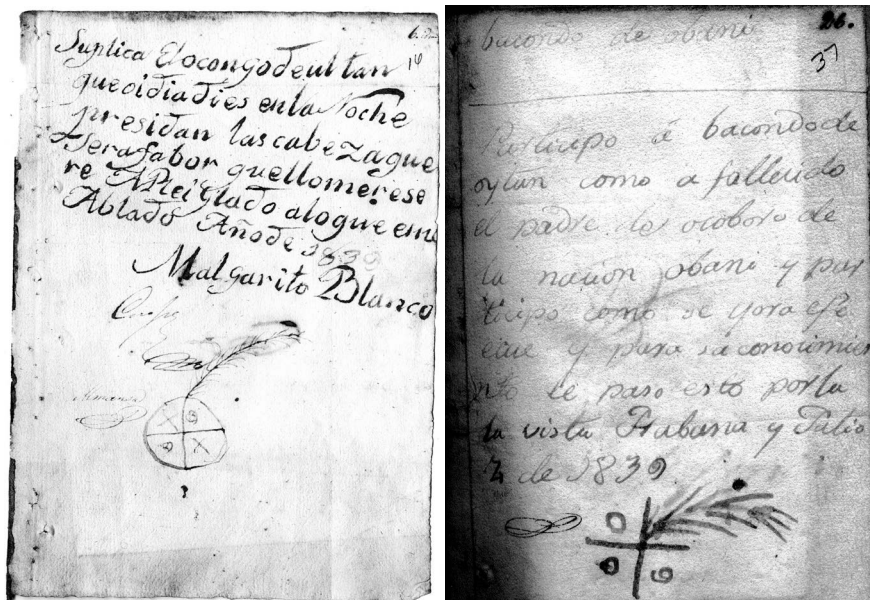 6.
14
Suplica El ocongo de ultan
que oi dia dies en la Noche
presidan las cabezaque
sera fabor que llomerese
re APlei glado aloque eme
Ablado Año de 1839
Malgarito Blanco
26.
37
bacondo de obani
Participo á bacondo de
oytan como a fallecido
el padre de ocoboro de
la nacion obani y par
ticipo como se yora efe
eiue y para sa conocimie
nto le paso esto por la
la vista Habana y Julio
2 de 1839